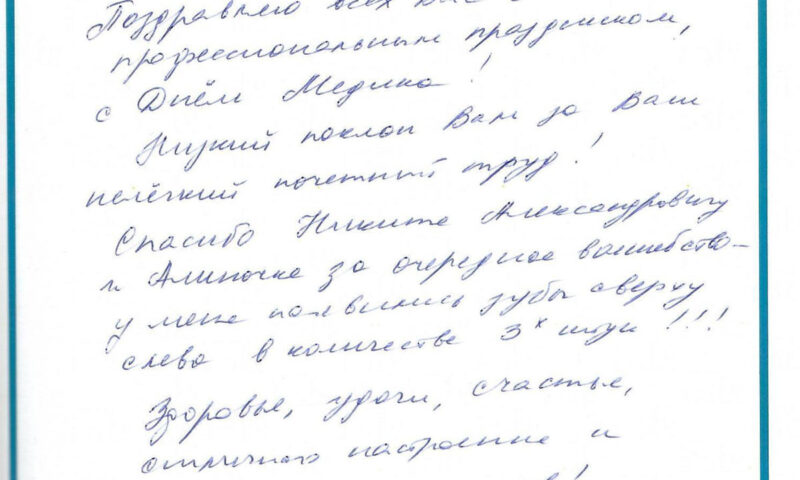 Поздравляю всех Вас с
профессиональным праздником,
с Днём Медика!
Низкий поклон Вам за Ваш
нелёгкий почетный труд!
Спасибо Никите Александровичу
и Алиночке за очередное волшебство -
у меня появились зубы сверху
слева в количестве 3х штук!!!
Здоровье, удачи, счастье,
отличного настроение и